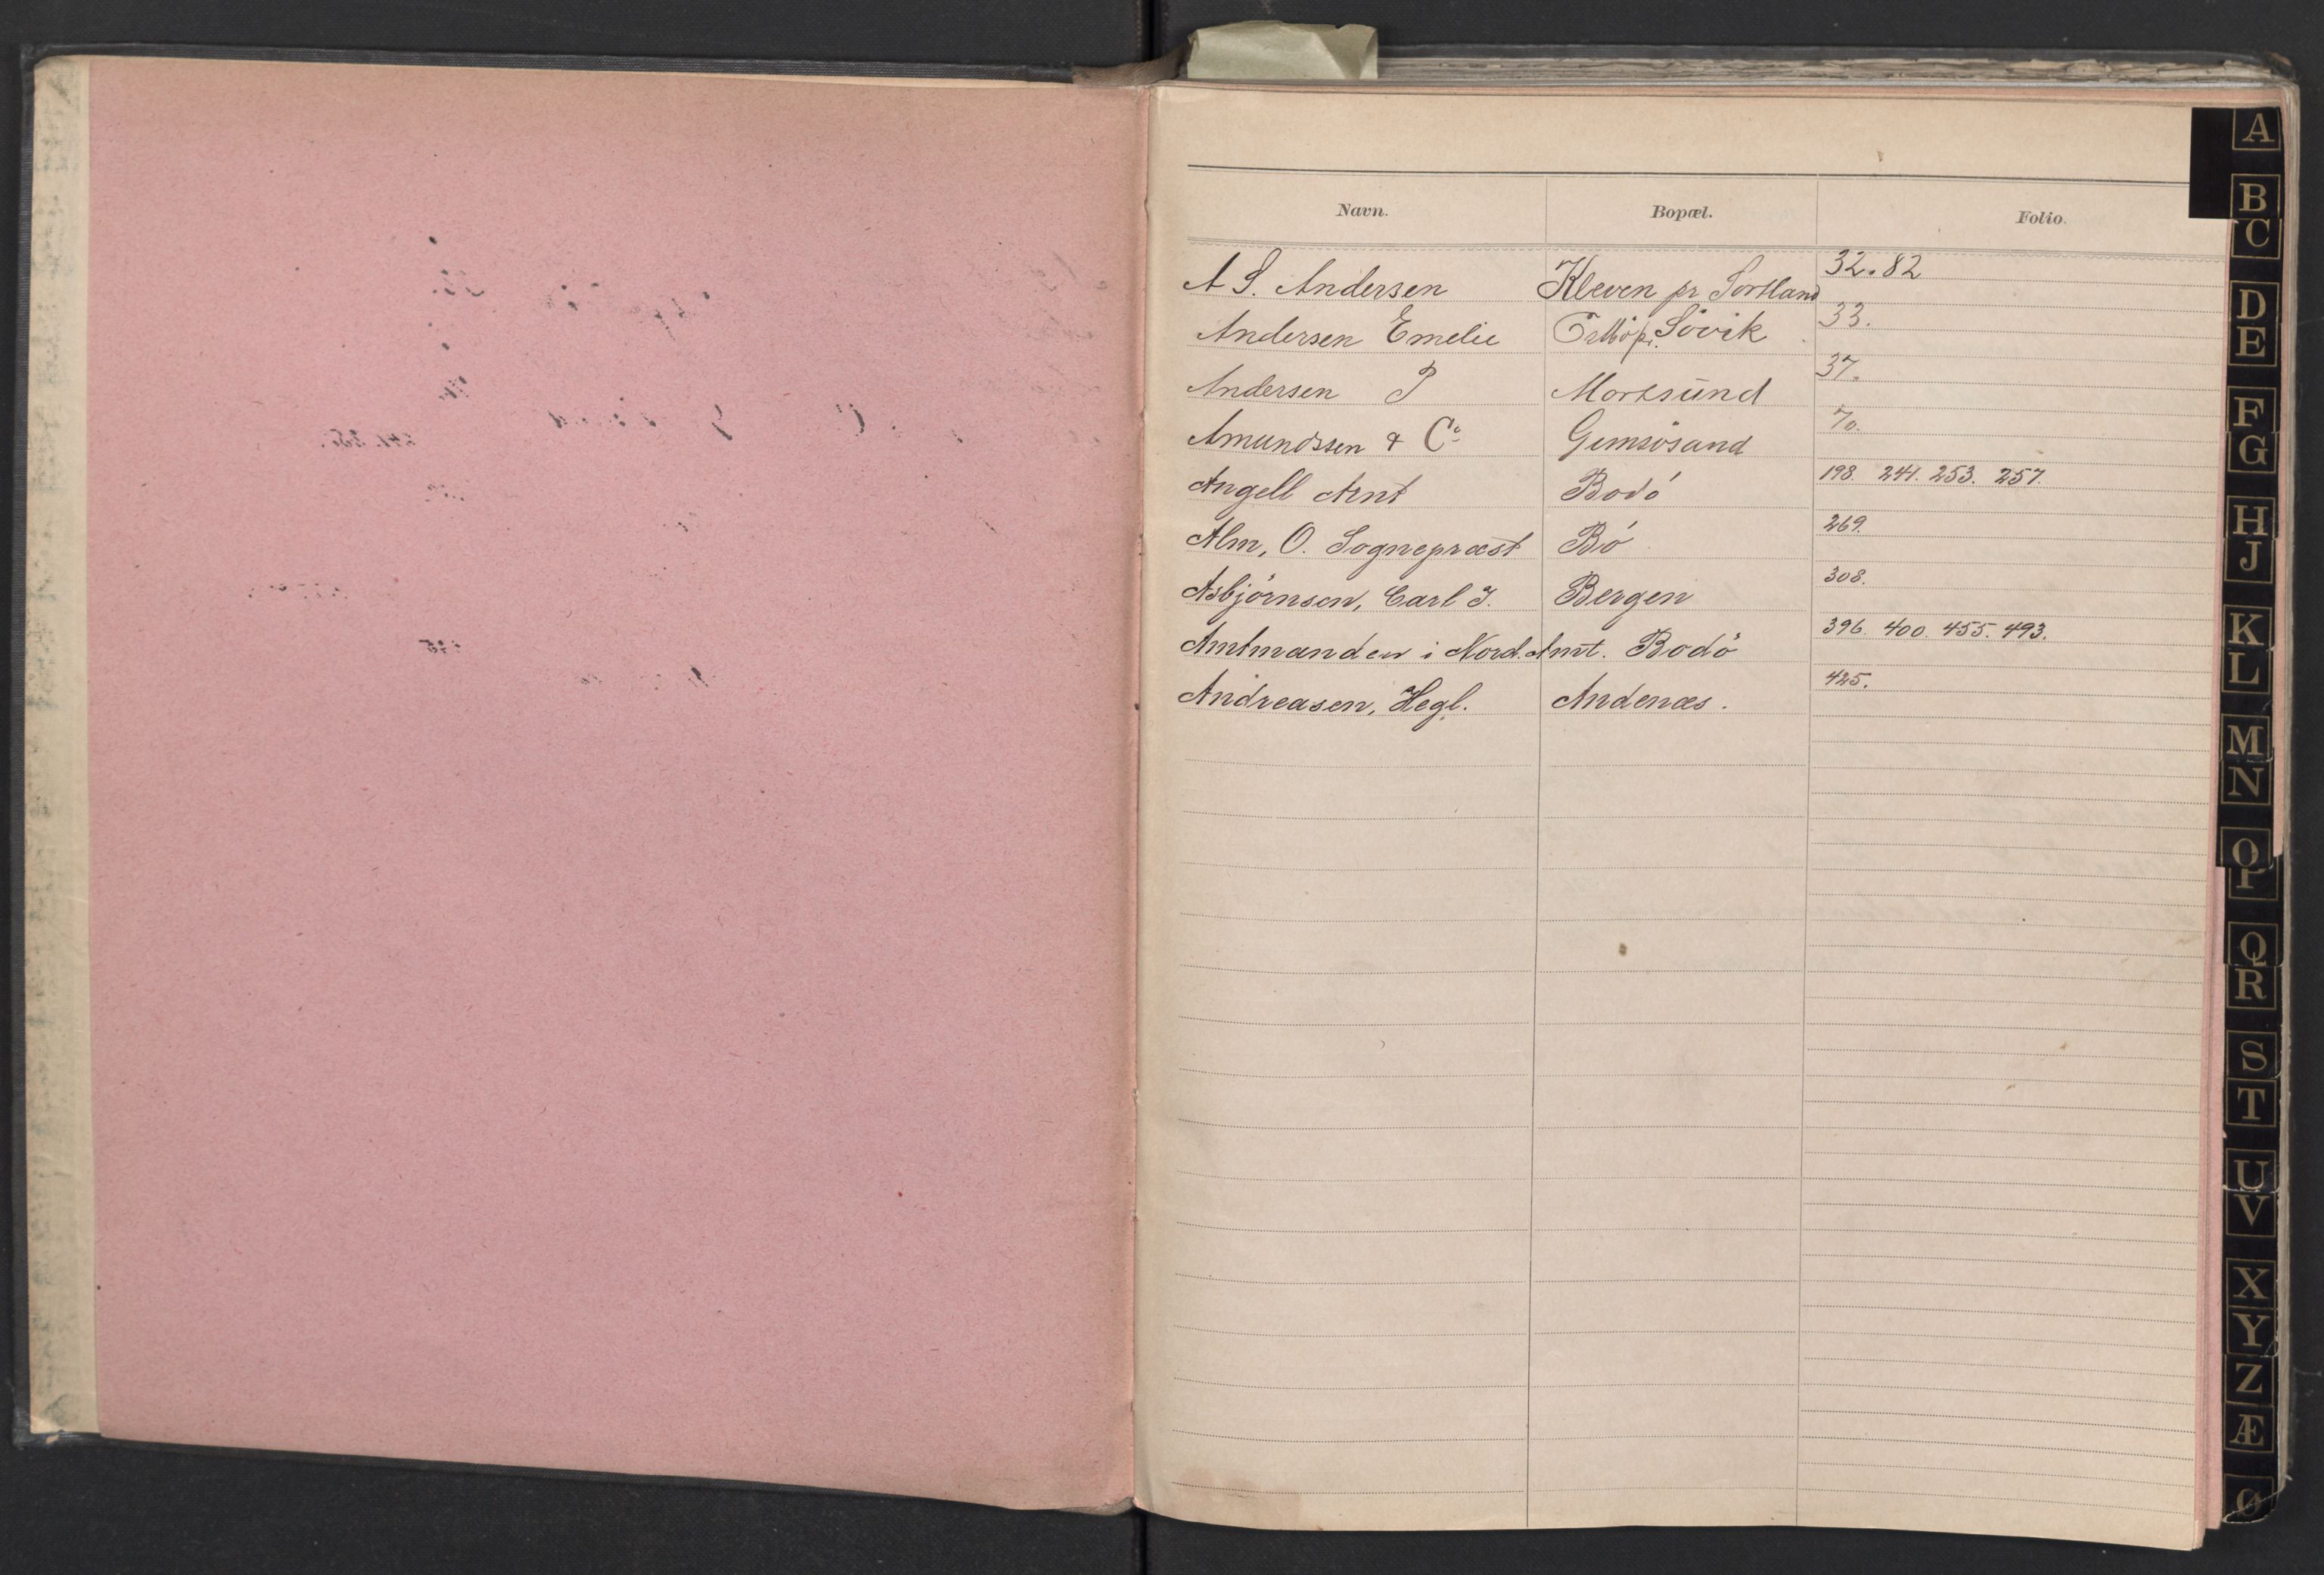 Navn. Bopæl. Folio.
A S. Andersen Kleven pr Sortland 32. 82
Andersen Emelie pr. Sövik 33.
Andersen P Morksund 37.
Amundssen & Co Gimsösand 70.
Angell Arnt Bodö 198. 241. 253. 257.
Alm, O. Sognepræst Bö 269.
Asbjörnsen, Carl J. Bergen 308.
Amtmanden i Nord. Amt. Bodö 396. 400. 455. 493.
Andreasen, Hegl. Andenæs. 425.
A
B
C
D
E
F
G
H
J
K
L
M
N
O
P
Q
R
S
T
U
V
X
Y
Z
Æ
Ø